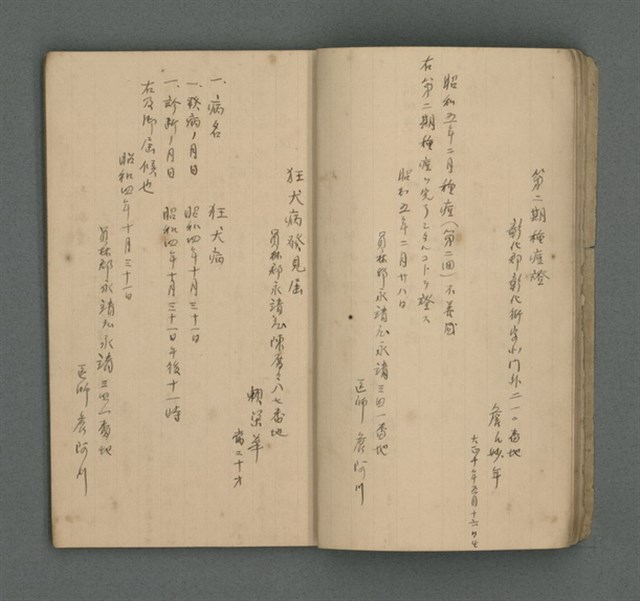 第二期種痘證
彰化郡彰化街字北門外二一〇番地
詹氏妙年
大正十年五月十六日生
昭和五年二月種痘(第二回)不善感
右第二期種痘ヲ完了シタルコトヲ證ス
昭和五年二月廿八日
員林郡永靖庄永靖三四一番地
医師 詹阿川
狂犬病發見届
員林郡永靖庄陳厝厝八七番地
賴梁華
當二十才
一、病名 狂犬病
一、發病ノ月日 昭和四年十月三十一日
一、診断ノ月日 昭和四年十月三十一日午後十一時
右及御届候也
昭和四年十月三十一日
員林郡永靖庄永靖三四一番地
医師 詹阿川